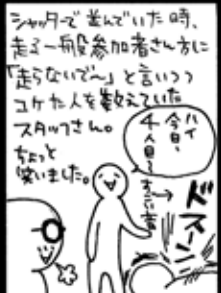 シャッターで並んでいた時、
走る一般参加者さん方に
「走らないで〜」と言いつつ
コケた人を数えていた
スタッフさん。
ちょっと
笑いました。
ハイ
今日、
4人目〜
すごい音→
ドスーン